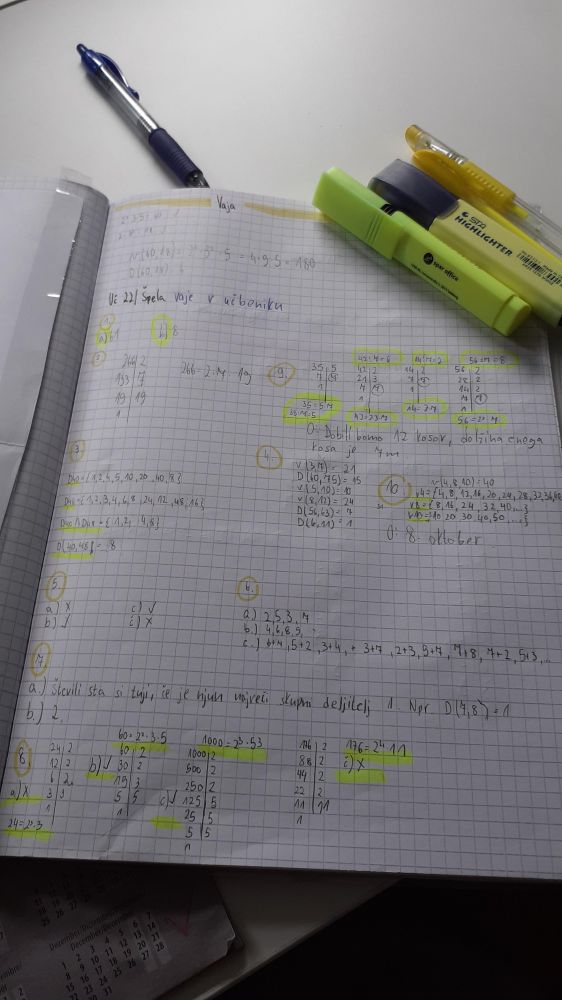 Vaja
v(60,18) = 2² · 3² · 5 = 4 · 9 · 5 = 180
D(60,18)
Uč 22/ Špela vaje v učbeniku
1.
a) 61
b) 8
2.
266 | 2
133 | 7
19 | 19
1
266 = 2 · 7 · 19
9.
42:7=6
14:7=2
56:7=8
35 | 5
7 | 7
1
42 | 2
21 | 3
7 | 7
1
14 | 2
7 | 7
1
56 | 2
28 | 2
14 | 2
7 | 7
1
35=5·7
35:7=5
42=2·3·7
14=2·7
56=2³·7
O: Dobili bomo 12 kosov, dolžina enega
kosa je 7m
3.
D40={1,2,4,5,10,20,40,8}
D48={1,2,3,4,6,8,24,12,48,16}
D40 ∩ D48 = {1,2,4,8}
D(40,48) = 8
4.
v(3,7) = 21
D(60,75) = 15
v(5,10) = 10
v(8,12) = 24
D(56,63) = 7
D(6,11) = 1
10
v(4,8,10)=40
v4={4,8,12,16,20,24,28,32,36,40
v8={8,16,24,32,40,...}
v10={10,20,30,40,50,...}
O: 8. oktober
5.
a) X
b) ✓
c) ✓
č) X
6.
a.) 2,5,3,7
b.) 4,6,8,9,
c.) 6+4, 5+2, 3+4, + 3+7, 2+3, 5+7, 7+8, 7+2, 5+3,...
7
a.) Števili sta si tuji, če je njun največji skupni delitelj 1. Npr. D(7,8) = 1
b.) 2.
8.
24 | 2
12 | 2
6 | 2
3 | 3
1
a) X
24=2³·3
60=2²·3·5
60 | 2
30 | 2
15 | 3
5 | 5
1
b) ✓
1000=2³·5³
1000 | 2
500 | 2
250 | 2
125 | 5
25 | 5
5 | 5
1
c) ✓
176 | 2
88 | 2
44 | 2
22 | 2
11 | 11
1
176=2⁴·11
č) X
STABILO
HIGHLIGHTER
spar office
Dezember/December